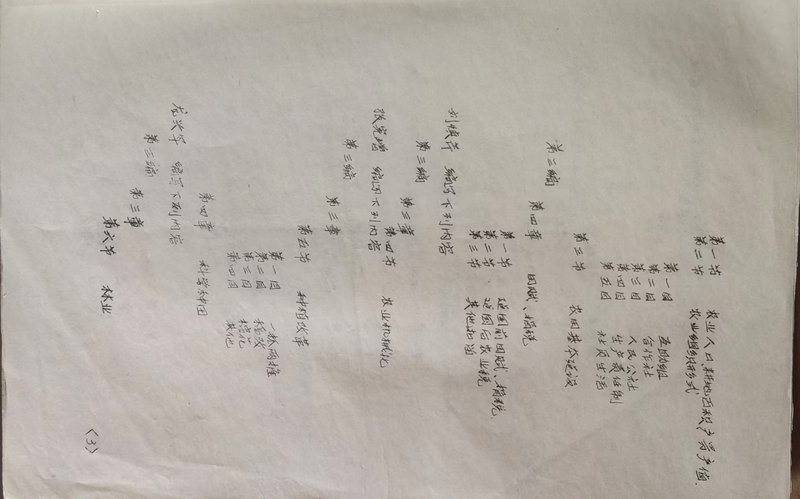 第一节 农业人口耕地面积产量产值
第二节 农业组织形式
第一目 互助组
第二目 合作社
第三目 人民公社
第四目 生产责任制
第五目 社员生活
第三节 农田基本建设
第三编
第四章 田赋、捐税
第一节 建国前田赋、捐税
第二节 建国后农业税
第三节 其他
编写下列内容
第三编
第三章
第四节 农业机械化
编写下列内容
第三编
第三章
第五节 种植改革
第一目
第二目
第三目 棉花
第四目 其他
第四章 科学种田
编写下列内容
第三编
第三章
第六节 林业
(3)